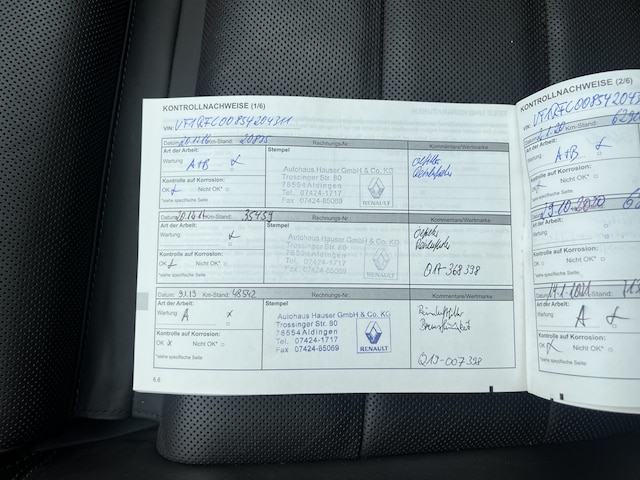 KONTROLLNACHWEISE (1/6)
VIN: VF1RFC00854204311
Datum: 20.11.16 Km-Stand: 20835 Rechnungs-Nr.: Kommentare/Wertmarke
Art der Arbeit: Stempel
Wartung A+B
Kontrolle auf Korrosion:
OK Nicht OK*
*siehe spezifische Seite
Autohaus Hauser GmbH & Co. KG
Trossinger Str. 80
78554 Aldingen
Tel. 07424-1717
Fax 07424-85069
RENAULT
Km-Stand: 35459 Rechnungs-Nr.: Kommentare/Wertmarke
Art der Arbeit: Stempel
Wartung
Kontrolle auf Korrosion:
OK Nicht OK*
*siehe spezifische Seite
Autohaus Hauser GmbH & Co. KG
Trossinger Str. 80
78554 Aldingen
Tel. 07424-1717
Fax 07424-85069
RENAULT
Datum: 9.1.19 Km-Stand: 48542 Rechnungs-Nr.: Kommentare/Wertmarke
Art der Arbeit: Stempel
Wartung A x
Kontrolle auf Korrosion:
OK x Nicht OK*
*siehe spezifische Seite
Autohaus Hauser GmbH & Co. KG
Trossinger Str. 80
78554 Aldingen
Tel. 07424-1717
Fax 07424-85069
RENAULT
Bremsflüssigkeit
Q19-007398
6.6
KONTROLLNACHWEISE (2/6)
VIN:
Km-Stand:
Art der Arbeit:
Wartung A+B
Kontrolle auf Korrosion:
Nicht OK*
*siehe spezifische Seite
29.10.2020
Art der Arbeit:
Wartung
Kontrolle auf Korrosion:
OK Nicht OK*
*siehe spezifische Seite
Datum: 14.1.2021
Art der Arbeit:
Wartung A
Kontrolle auf Korrosion:
OK Nicht OK*
*siehe spezifische Seite